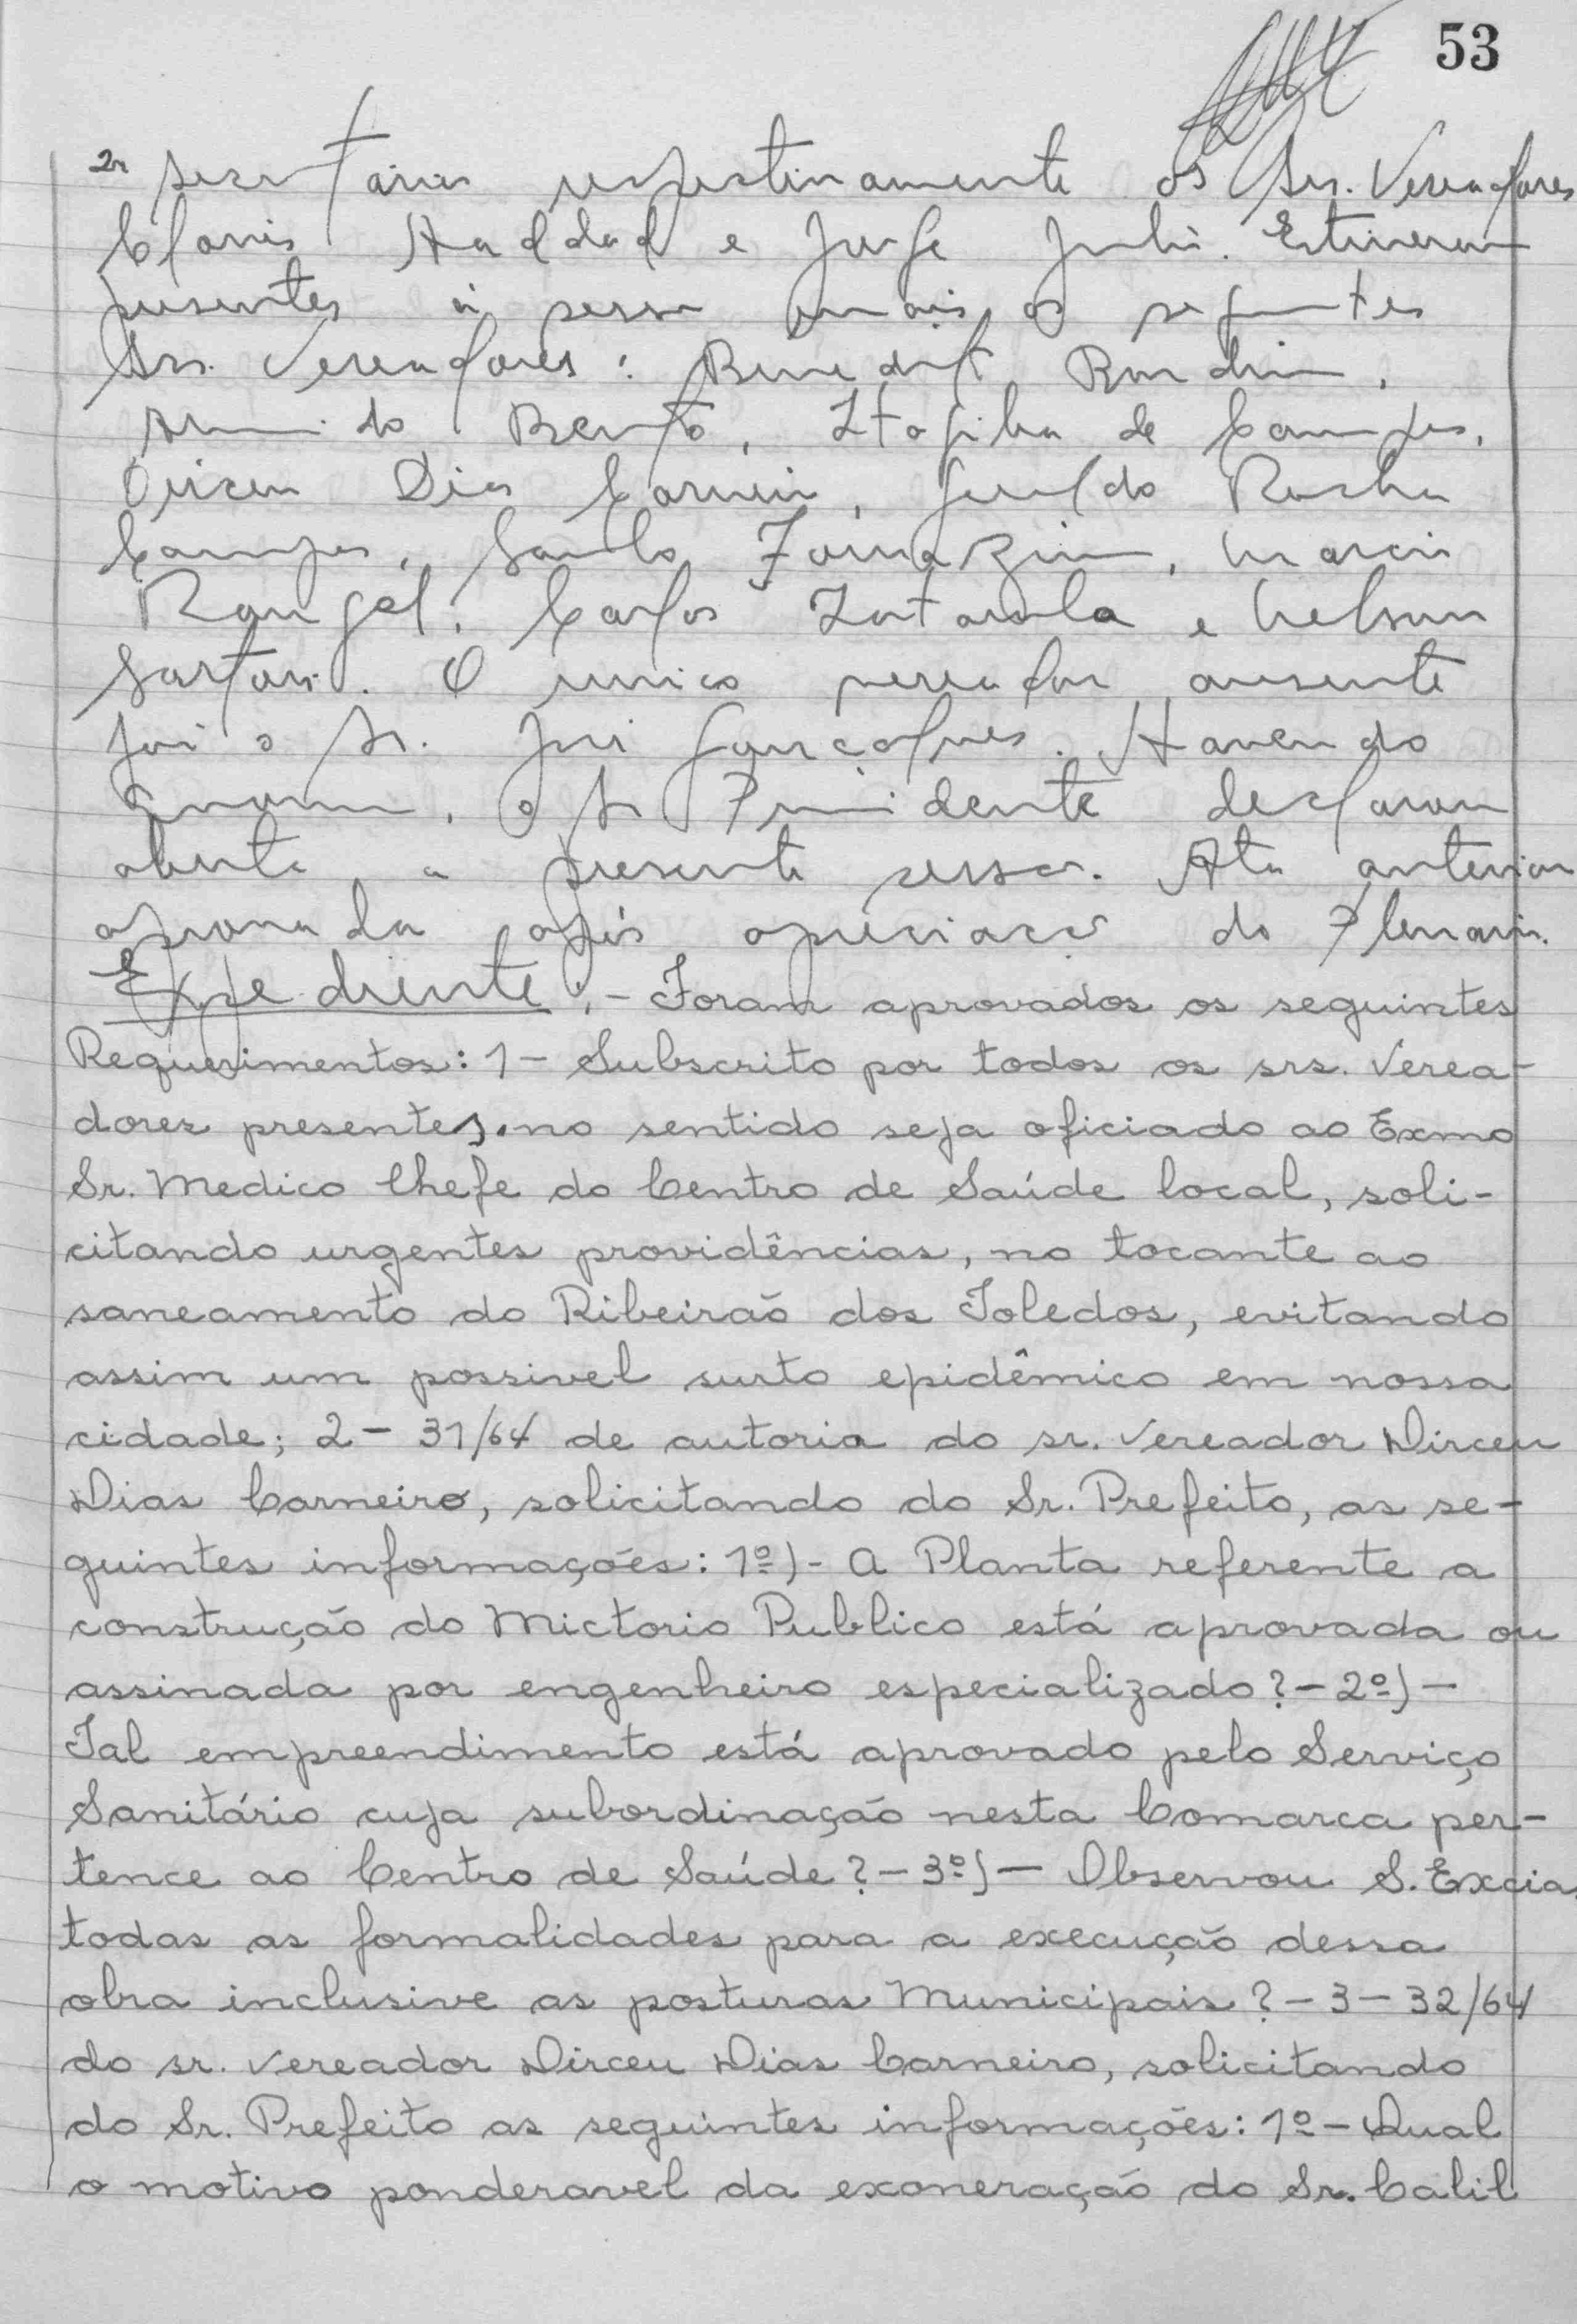 53
2º secretarios respectivamente os Srs. Vereadores
Clovis Haddad e Jorge Julio. Estiveram
presentes à sessão mais os seguintes
Srs. Vereadores: Benedito Rondim,
Armindo Bento, de Campos,
Dirceu Dias Carneiro, Geraldo Rocha
Campos, Santo Fornazim, Marcio
Rangel, Carlos e Nelson
Sartori. O unico vereador ausente
foi o Sr. José Gonçalves. Havendo
quorum, o Sr Presidente declarou
aberta a presente sessão. Ata anterior
aprovada após apreciação do Plenario.
Expediente: - Foram aprovados os seguintes
Requerimentos: 1 - Subscrito por todos os srs. Verea-
dores presentes, no sentido seja oficiado ao Exmo
Sr. Medico Chefe do Centro de Saúde local, soli-
citando urgentes providências, no tocante ao
saneamento do Ribeirão dos Toledos, evitando
assim um possivel surto epidêmico em nossa
cidade; 2 - 31/64 de autoria do sr. Vereador Dirceu
Dias Carneiro, solicitando do Sr. Prefeito, as se-
guintes informações: 1º) - A Planta referente a
construção do Mictorio Publico está aprovada ou
assinada por engenheiro especializado? - 2º) -
Tal empreendimento está aprovado pelo Serviço
Sanitário cuja subordinação nesta Comarca per-
tence ao Centro de Saúde? - 3º) - Observou S. Excia.
todas as formalidades para a execução dessa
obra inclusive as posturas Municipais? - 3 - 32/64
do sr. vereador Dirceu Dias Carneiro, solicitando
do Sr. Prefeito as seguintes informações: 1º - Qual
o motivo ponderavel da exoneração do Sr. Calil